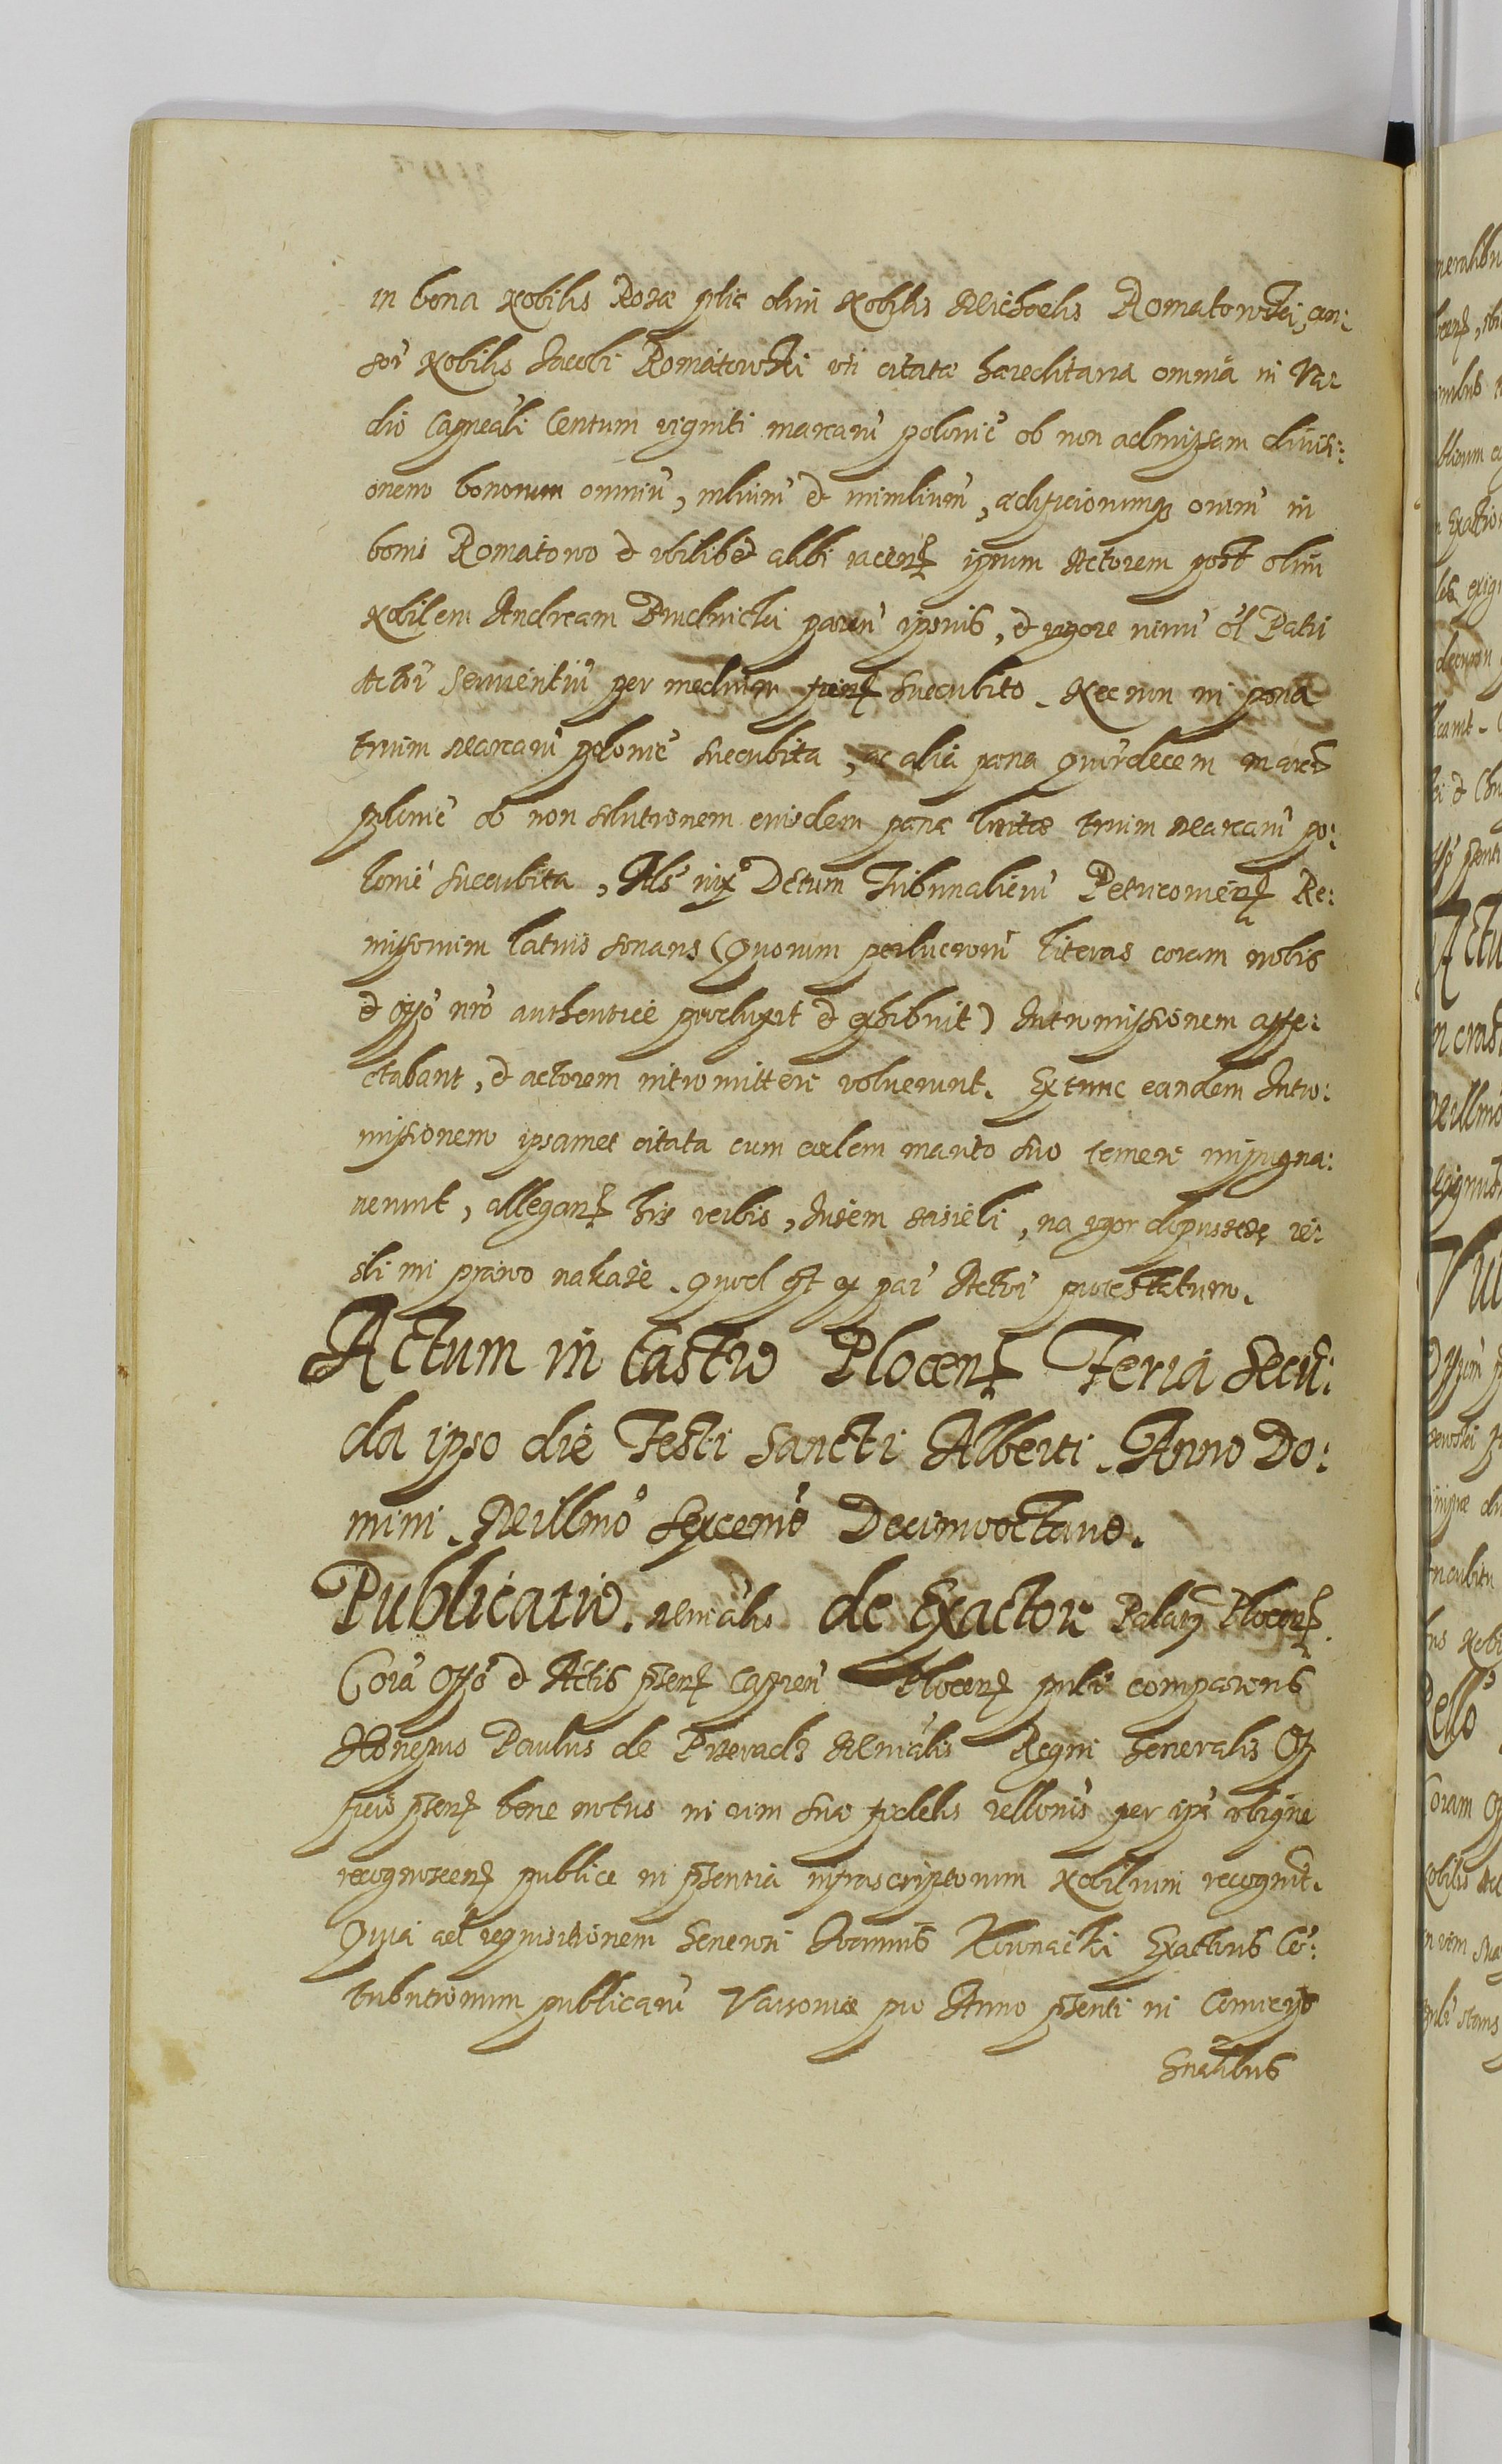 in bona Nobilis Rosæ filiæ olim Nobilis Michaelis Romatowski, con:
sor Nobilis Jacobi Romatowski uti citatæ hæreditaria omnia in Va
dio Capneali Centum viginti marcaru polonic ob non admissam divisi:
onem bonorum omniu, mlium et immlium, ædificiorumq omm in
bonis Romatowo et ubilibet alibi iacen ipsum Actorem post olim
Nobilem Andream Prudnicki paren ipsius, et vigore Patri
Actor servientiu per medium succubito. Nec non in pœna
trium Marcaru polonic succubita, ac alia pœna quordecem marc
polonic ob non solutionem eiusdem pœnæ luitæ trium Marcaru po:
lonic succubita, Als iux Dctum Tribunaliciu Petricovien Re:
missorium latius sonans (Quorum literas coram nobis
et offo nro authentice produxit et exhibuit) Intromissionem affe:
ctabant, et actorem intromittere voluerunt. Extunc eandem Intro:
missionem ipsamet citata cum eodem marito suo temere impugna:
verunt, allegan his verbis, Jusem sasieli, na ugor dopuszcze ie:
sli mi prawo nakaze. quod est ex par Actor protestatum.
Actum in Castro Plocen Feria Secu:
da ipso die Festi Sancti Alberti. Anno Do:
mini. Millmo Sexcenmo Decimooctavo.
Publicatio. nemalis de Exactore Palaty Plocen.
Cora Offo et Actis psen Capnen Plocen publi comparens
Honestus Paulus de Przerad Menialis Regni Generalis Of
ficio psen bene notus in vim suæ fidelis rellonis per ips ubique
recognoscen publice in psentia infrascriptorum Nobilium recognit.
Quia ad requisitionem Generosi Joannis Exactoris Co:
tributionum publicaru Varsoviæ pro Anno psenti in Comitys
Gnalibus